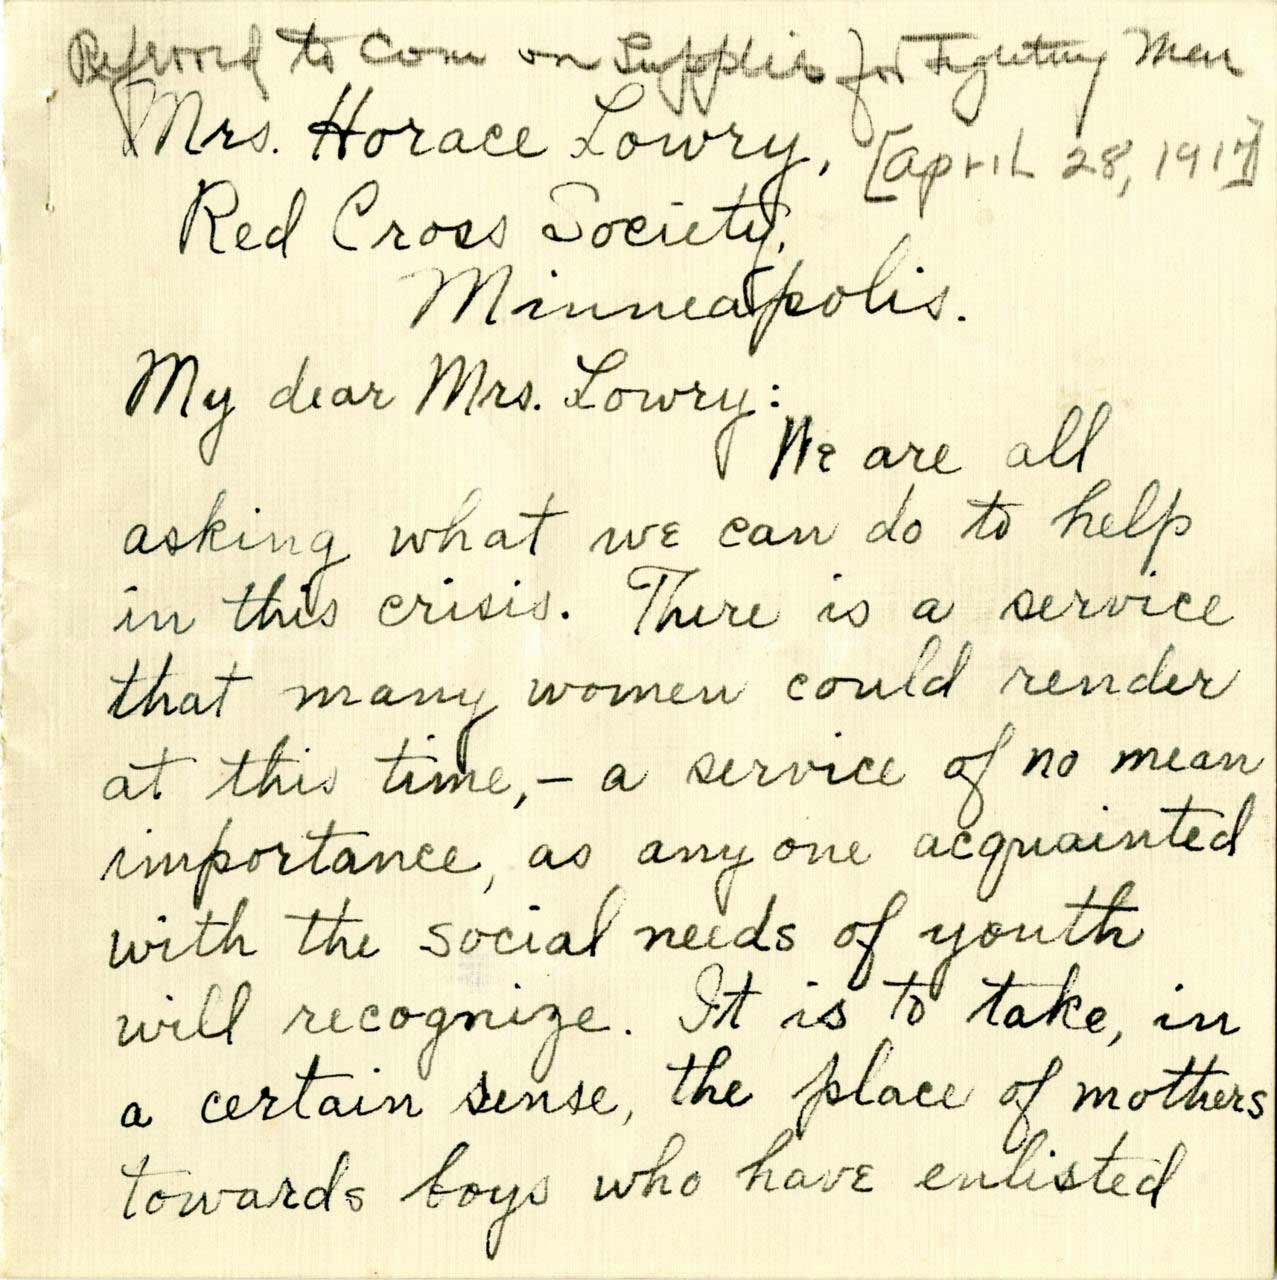 Referred to Com on Supplies for Fighting Men
Mrs. Horace Lowry,
[April 28, 1917]
Red Cross Society,
Minneapolis.
My dear Mrs. Lowry:
We are all
asking what we can do to help
in this crisis. There is a service
that many women could render
at this time, – a service of no mean
importance, as any one acquainted
with the social needs of youth
will recognize. It is to take, in
a certain sense, the place of mothers
towards boys who have enlisted